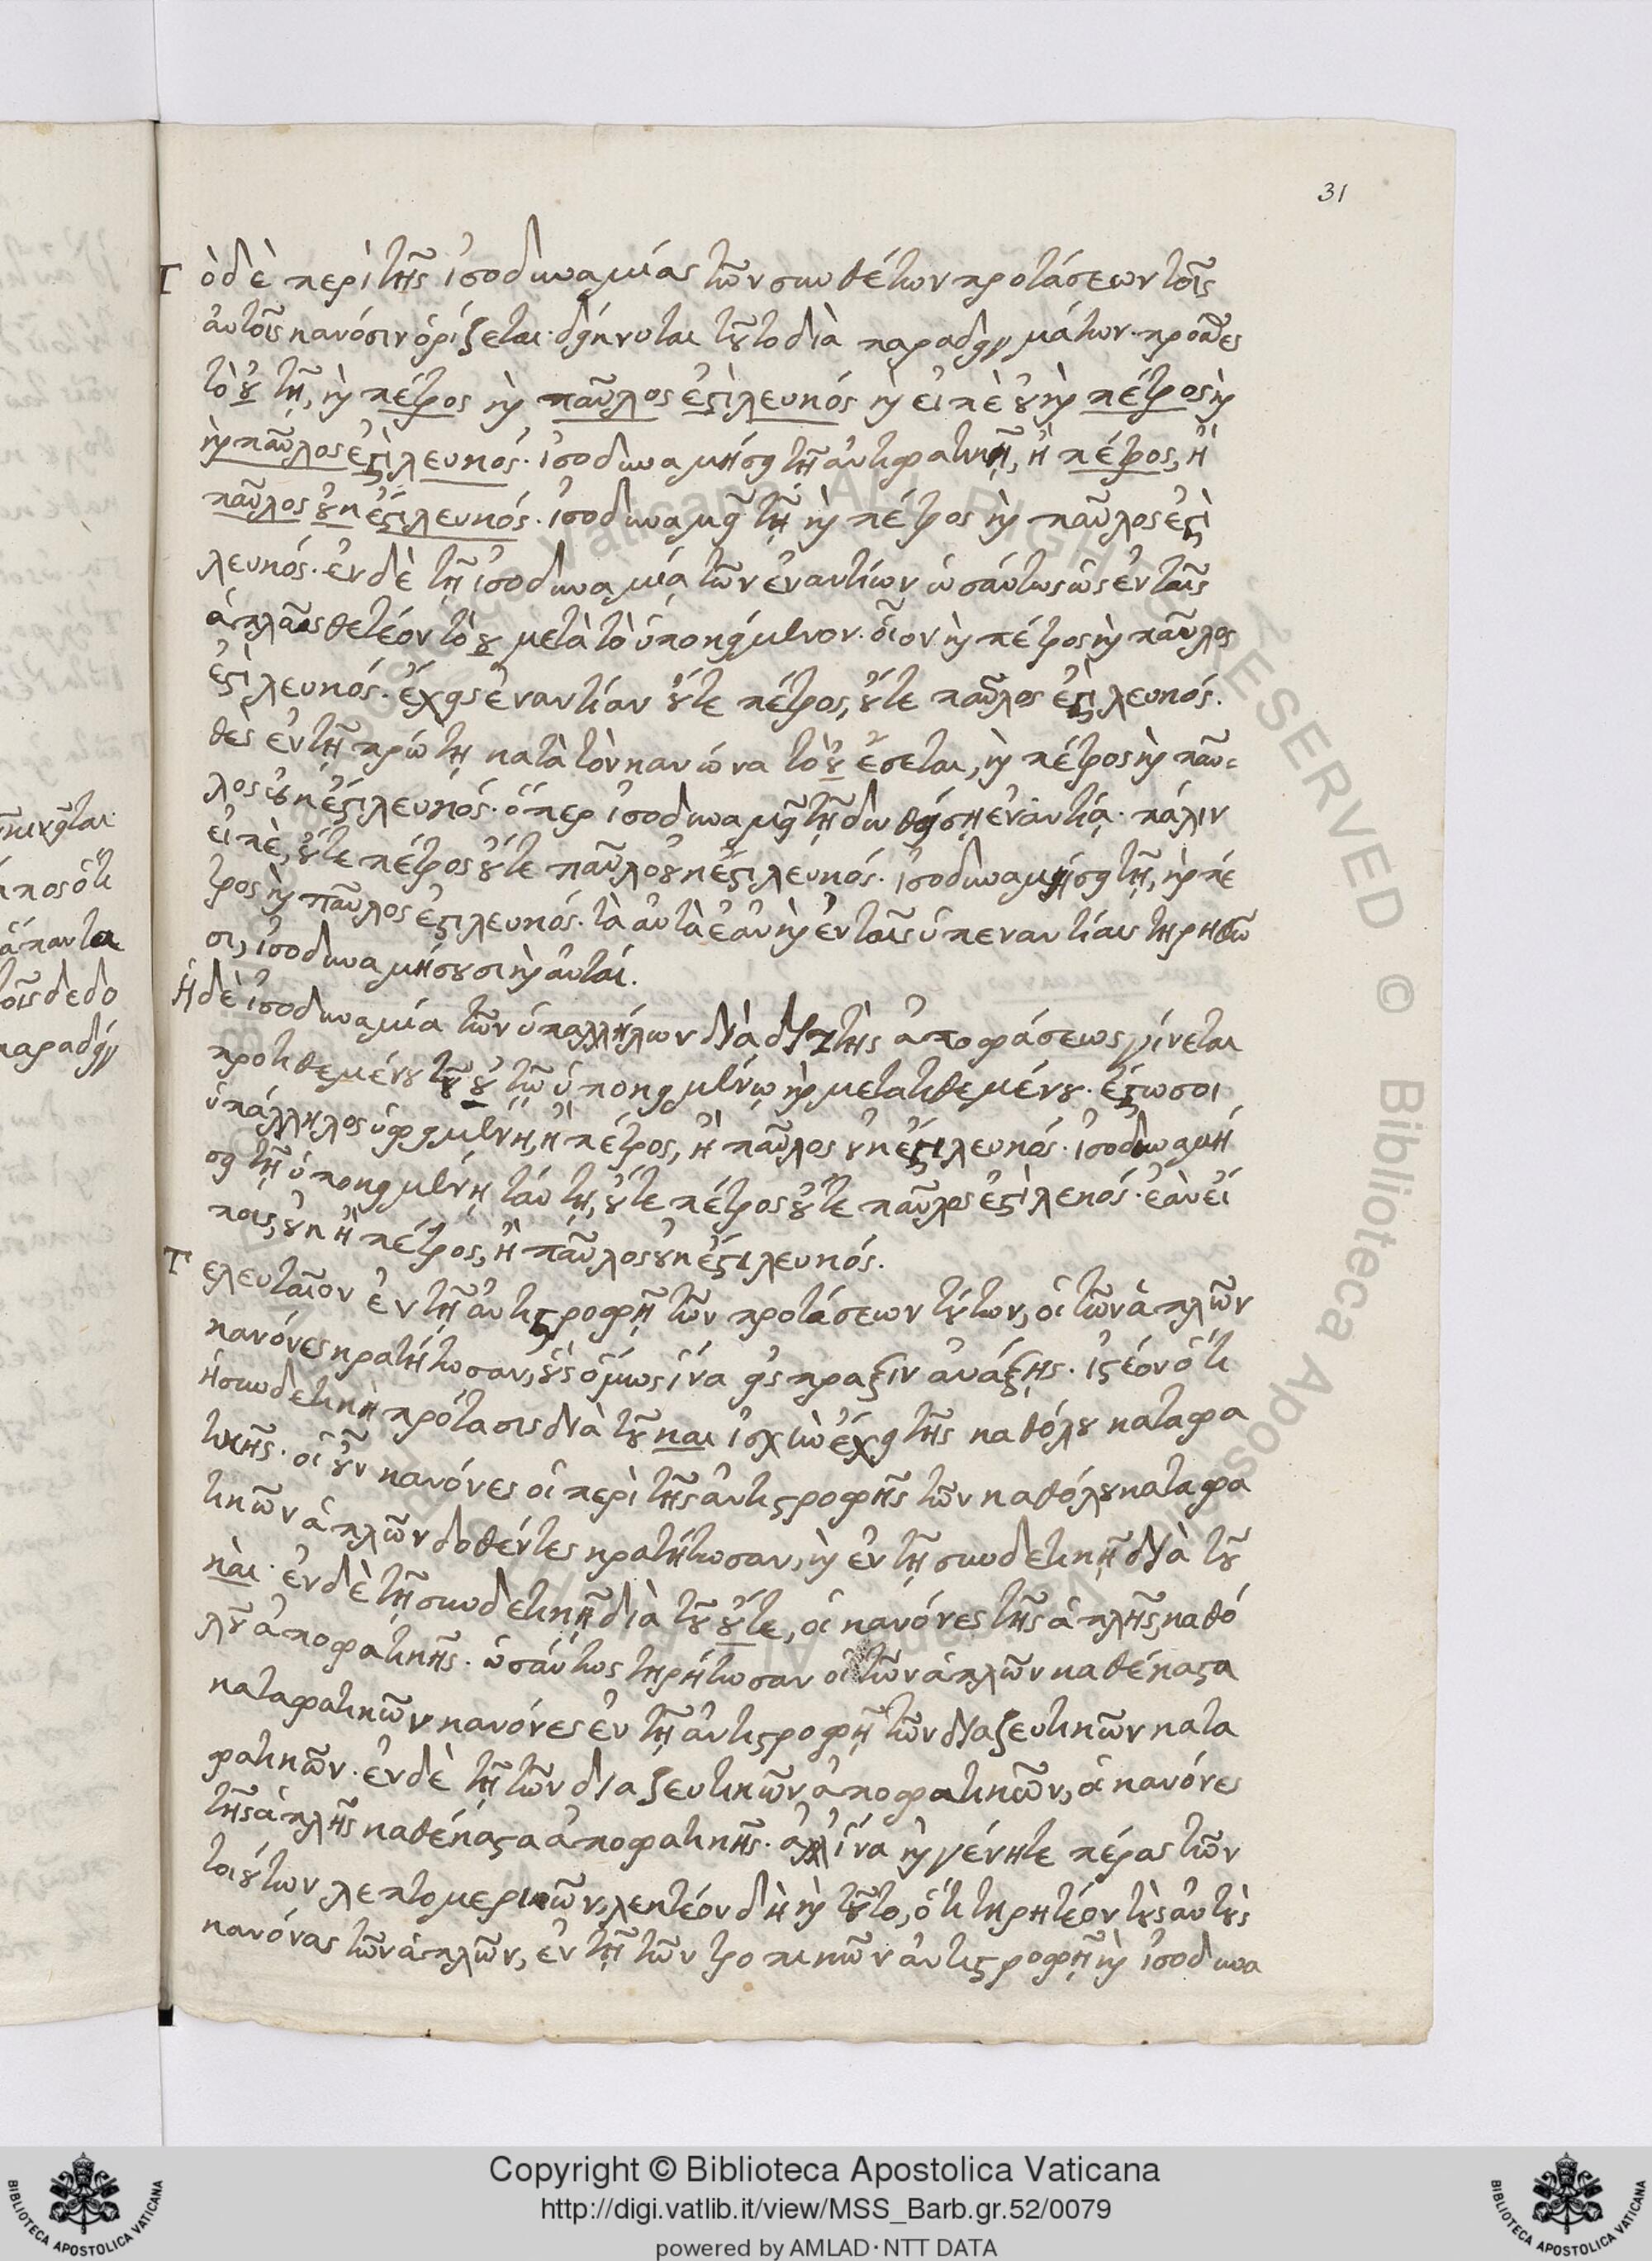 31
Τὸ δὲ περὶ τῆς ἰσοδυναμίας τῶν συνθέτων προτάσεων τοῖς
αὐτοῖς κανόσιν ὁρίζεται· δείκνυται τοῦτο διὰ παραδειγμάτων· πρόθες
τὸ οὐ τῇ, καὶ πέτρος καὶ παῦλος ἐστὶ λευκός καὶ εἰπὲ οὐ καὶ πέτρος καὶ
καὶ παῦλος ἐστὶ λευκός· ἰσοδυναμήσει τῇ ἀντιφατικῇ, ἢ πέτρος, ἢ
παῦλος οὐκ ἔστι λευκός· ἰσοδυναμεῖ τῇ καὶ πέτρος καὶ παῦλος ἐστὶ
λευκός· ἐν δὲ τῇ ἰσοδυναμίᾳ τῶν ἐναντίων ὡσαύτως ὡς ἐν ταῖς
ἁπλαῖς θετέον τὸ οὐ μετὰ τὸ ὑποκείμενον· οἷον καὶ πέτρος καὶ παῦλος
ἐστὶ λευκός· ἔχεις ἐναντίαν οὔτε πέτρος, οὔτε παῦλος ἐστὶ λευκός.
θὲς ἐν τῇ πρώτῃ κατὰ τὸν κανόνα τὸ οὐ ἔσεται, καὶ πέτρος καὶ παῦ-
λος οὐκ ἔστι λευκός· ὅπερ ἰσοδυναμεῖ τῇ δοθείσῃ ἐναντίᾳ· πάλιν
εἰπὲ, οὔτε πέτρος οὔτε παῦλο οὐκ ἔστι λευκός· ἰσοδυναμήσει τῇ, καὶ πέ
τρος καὶ παῦλος ἐστι λευκός· τὰ αὐτὰ ἐὰν καὶ ἐν ταῖς ὑπεναντίαις τηρηθῶ
σι, ἰσοδυναμήσουσι καὶ αὐταί.
Ἡ δὲ ἰσοδυναμία τῶν ὑπαλλήλων διὰ τῆς ἀποφάσεως γίνεται
προτιθεμένου τοῦ οὐ τῷ ὑποκειμένῳ καὶ μετατιθεμένου· ἔστω σοι
ὑπάλληλος ὑφειμένη, ἢ πέτρος, ἢ παῦλος οὐκ ἔστι λευκός· ἰσοδυναμή
σει τῇ ὑποκειμένῃ ταύτῃ, οὔτε πέτρος οὔτε παῦλος ἐστὶ λεκός· ἐὰν εἴ
ποις, οὐκ ἢ πέτρος, ἢ παῦλος οὐκ ἔστι λευκός.
Τελευταῖον ἐν τῇ ἀντιστροφῇ τῶν προτάσεων τούτων, οἱ τῶν ἁπλῶν
κανόνες κρατήτωσαν, οὓς ὅμως ἵνα εἰς πραξιν ἀνάξῃς· ἰστέον ὅτι
ἡ συνδετικὴ πρότασις διὰ τοῦ και ἰσχὺν ἔχει τῆς καθόλου καταφα
τικῆς· οἱ οὖν κανόνες οἱ περὶ τῆς ἀντιστροφῆς τῶν καθόλου καταφα
τικῶν ἁπλῶν δοθέντες κρατήτωσαν, καὶ ἐν τῇ συνδετικῇ διὰ τοῦ
καὶ· ἐν δὲ τῇ συνδετικῇ διὰ τοῦ οὔτε, οἱ κανόνες τῆς ἁπλῆς καθό
λου ἀποφατικῆς· ὡσαύτως τηρήτωσαν οἱ τῶν ἁπλῶν καθέκαστα
καταφατικῶν κανόνες ἐν τῇ ἀντιστροφῇ τῶν διαζευτικῶν κατα
φατικῶν· ἐν δὲ τῇ τῶν διαζευτικῶν ἀποφατικῶν, οἱ κανόνες
τῆς ἁπλῆς καθέκαστα ἀποφατικῆς· ἀλλ' ἵνα καὶ γένητε πέρας τῶν
τοιούτων λεπτομερικῶν, λεκτέον δὴ καὶ τοῦτο, ὅτι τηρητέον τοὺς αὐτοὺς
κανόνας τῶν ἁπλῶν, ἐν τῇ τῶν τροπικῶν ἀντιστροφῇ καὶ ἰσοδυνα
Copyright © Biblioteca Apostolica Vaticana
http://digi.vatlib.it/view/MSS_Barb.gr.52/0079
powered by AMLAD·NTT DATA
BIBLIOTECA APOSTOLICA VATICANA
BIBLIOTECA APOSTOLICA VATICANA